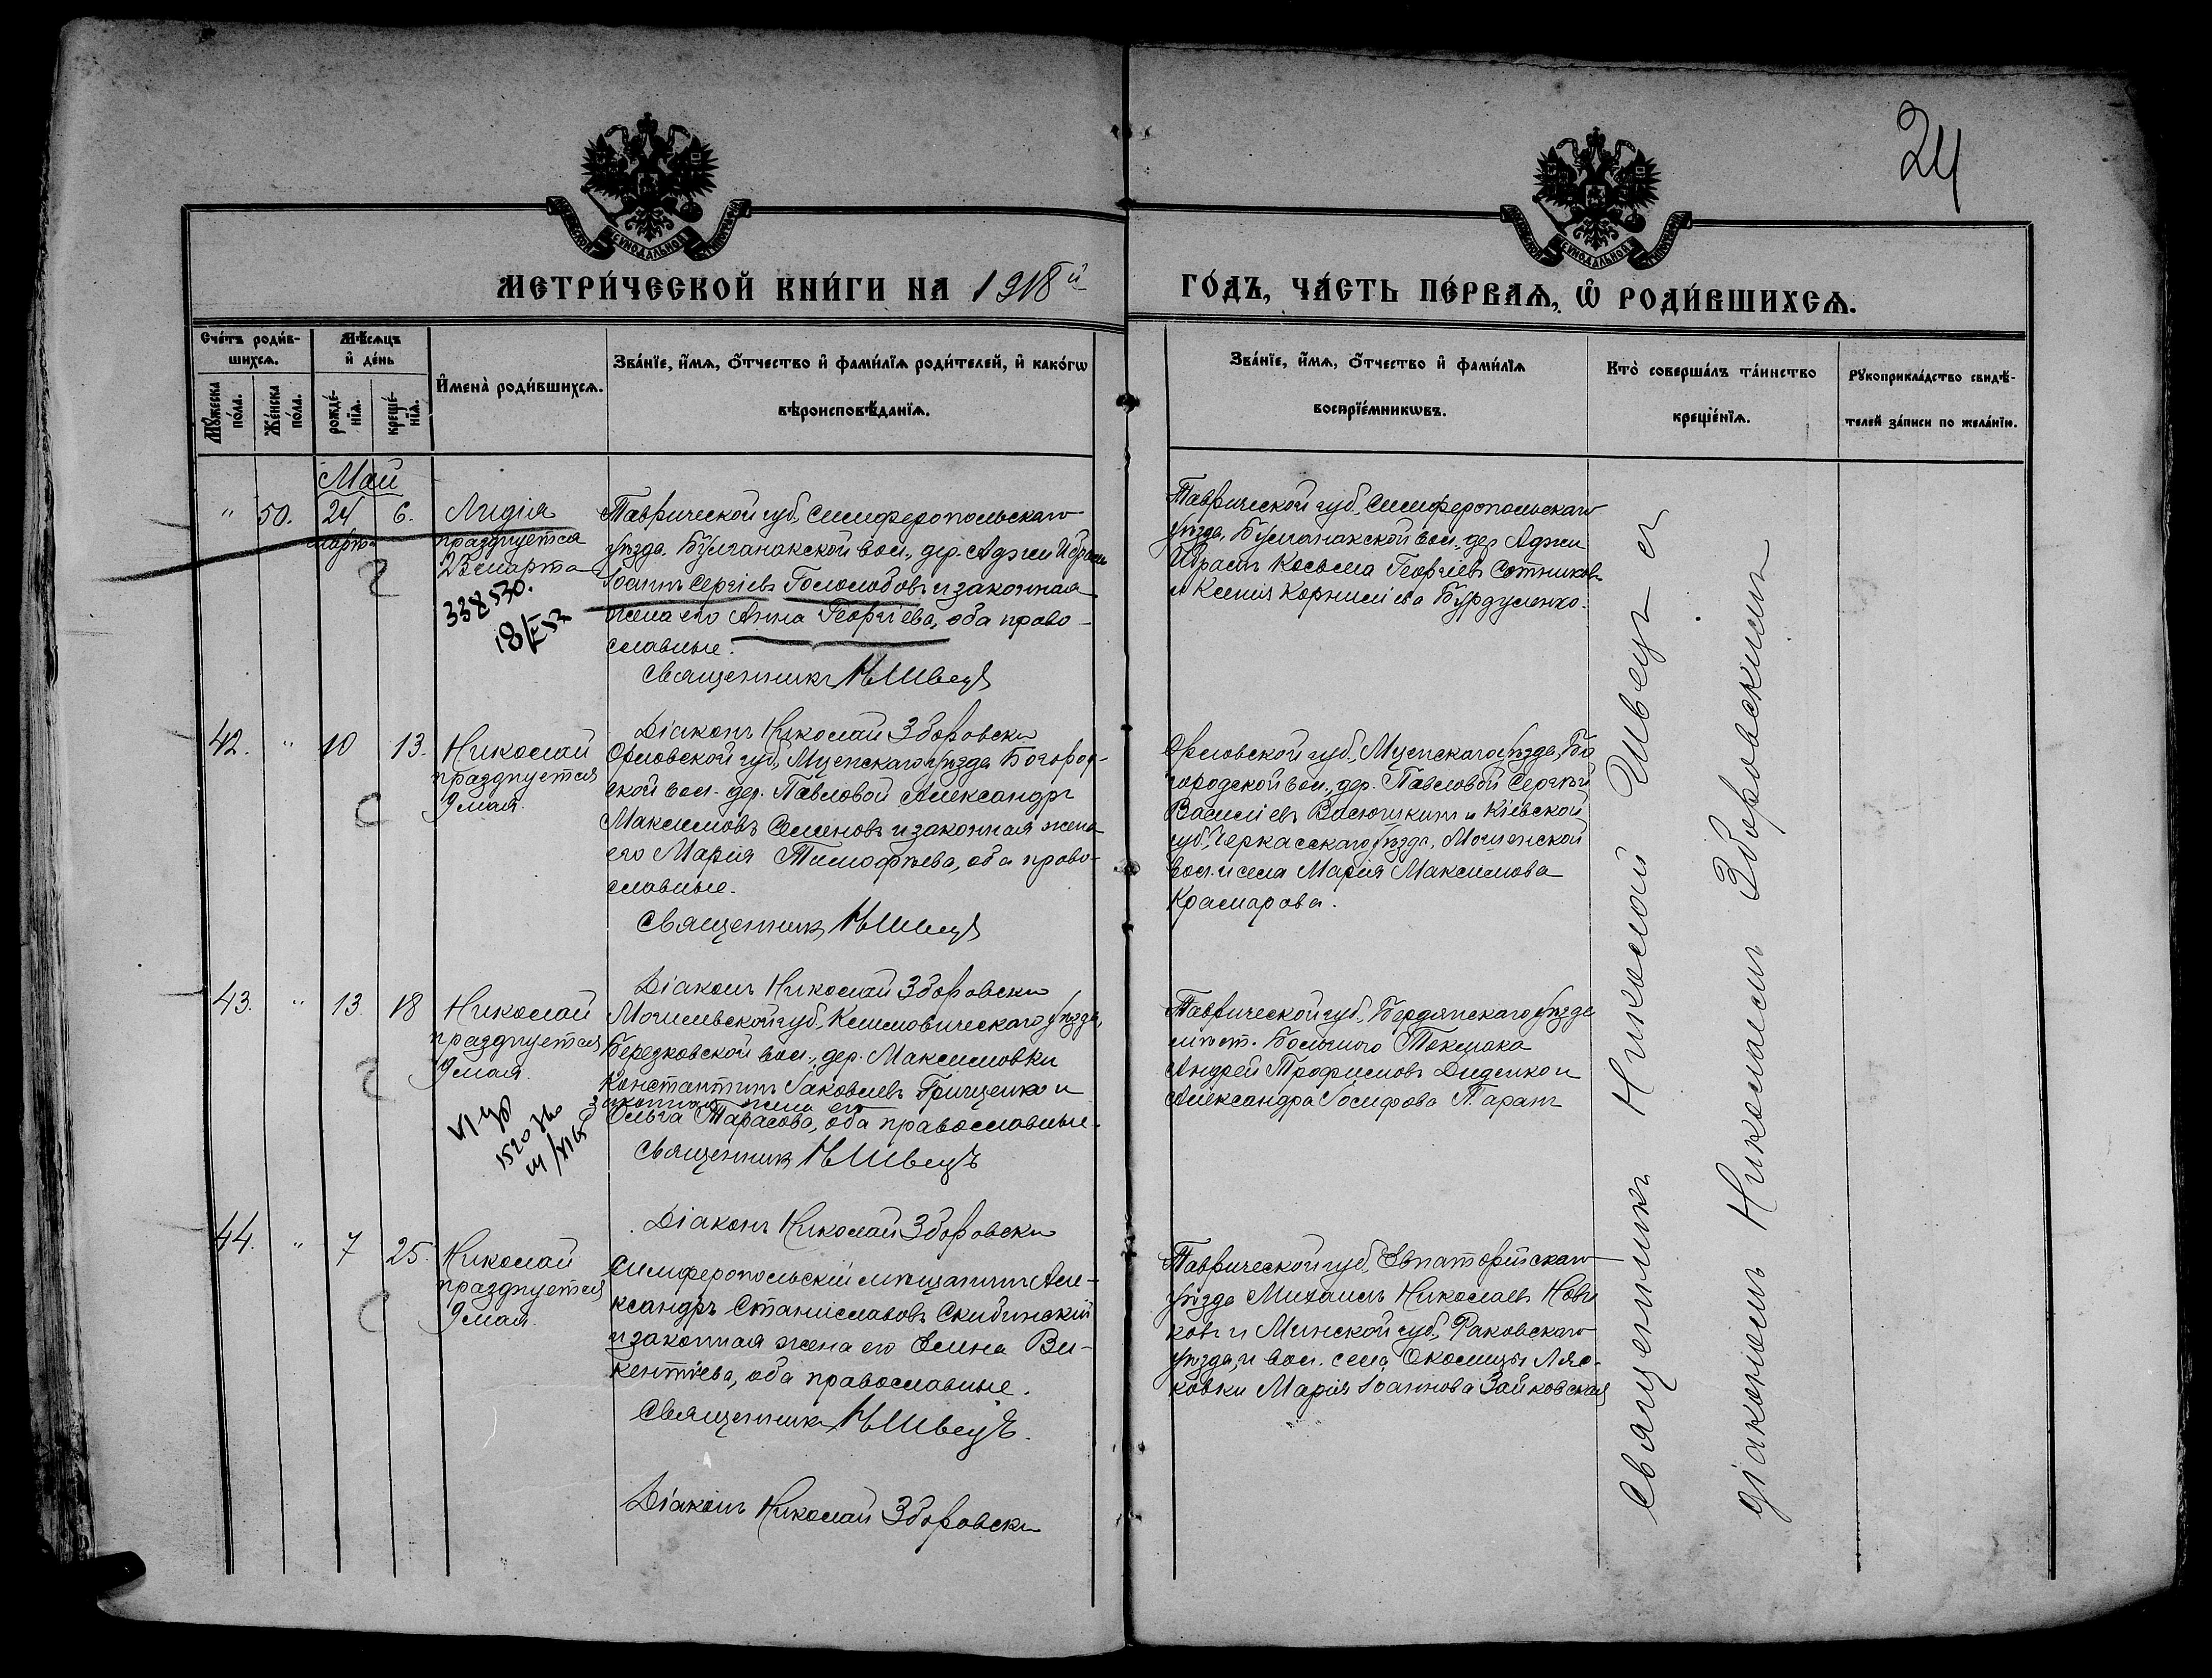 24
СѴНОДАЛЬНОЙ
СѴНОДАЛЬНОЙ
МЕТРИ́ЧЕСКОЙ КНИ́ГИ НА 1918й
ГО́ДЪ, ЧА́СТЬ ПЕ́РВАѦ, Ѡ҆ РОДИ́ВШИХСѦ.
Сче́тъ роди́в-
шихсѧ.
Мꙋ́жеска
по́ла.
Же́нска
по́ла.
Мѣ́сѧцъ
и҆ де́нь
рожде́-
нїѧ.
креще́-
нїѧ.
И҆мена̀ роди́вшихсѧ.
Зва́нїе, и҆́мѧ, ѻ҆́тчество и҆ фами́лїѧ роди́телей, и҆ како́гѡ
вѣроисповѣ́данїѧ.
Зва́нїе, и҆́мѧ, ѻ҆́тчество и҆ фами́лїѧ
воспрїе́мникѡвъ.
Кто̀ соверша́лъ та́инство
креще́нїѧ.
Рꙋкоприкла́дство свидѣ́-
телей за́писи по жела́нїю.
Май
" 50. 24 6.
марта
Лидія
празднуется
23 марта
338530.
Таврической губ., Симферопольскаго
уѣзда, Булганакской вол., дер. Аджи Ибрам
Іоаннъ Сергіевъ Гололобовъ и законная
жена его Анна Георгіева, оба право-
славные.
Священникъ Н Швецъ
Діаконъ Николай Зборовски
Таврической губ., Симферопольскаго
уѣзда, Булганакской вол., дер. Аджи
Ибрамъ Косьма Георгіевъ Сотниковъ
и Ксенія Корниліева Бурдуленко.
42. " 10 13.
Николай
празднуется
9 мая.
Орловской губ., Мценскаго уѣзда, Богород-
ской вол. дер. Павловой Александръ
Максимовъ Семеновъ и законная жена
его Марія Тимофѣева, оба право-
славные.
Священникъ Н Швецъ
Діаконъ Николай Зборовски
Орловской губ., Мценскаго уѣзда, Бо
городской вол., дер. Павловой Сергѣй
Василіевъ Васюшкинъ и Кіевской
губ., Черкасскаго уѣзда, Мошенской
вол. и села Марія Максимова
Крамарова.
43. " 13. 18
Николай
празднуется
9 мая.
Могилевской губ., Климовическаго уѣзда,
Березковской вол., дер. Максимовки
Константинъ Іаковлевъ Грищенко и
законная жена его
Ольга Тарасова, оба православные.
Священникъ Н Швецъ
Діаконъ Николай Зборовски
Таврической губ., Бердянскаго уѣзда
мѣст. Большого Токмака
Андрей Трофимовъ Диденко и
Александра Іосифова Таранъ
44. " 7 25.
Николай
празднуется
9 мая.
Симферопольскій мѣщанинъ Але-
ксандръ Станиславовъ Скибинскій
и законная жена его Елена Ви-
кентіева, оба православные.
Священникъ Н Швецъ.
Діаконъ Николай Зборовски
Таврической губ., Евпаторійскаго
уѣзда Михаилъ Николаевъ Нови
ковъ и Минской губ., Раковскаго
уѣзда, и вол. села Околицы Ляс-
ковки Марія Іоаннова Зайковская
Священникъ Николай Швецъ съ
діакономъ Николаемъ Зборовскимъ